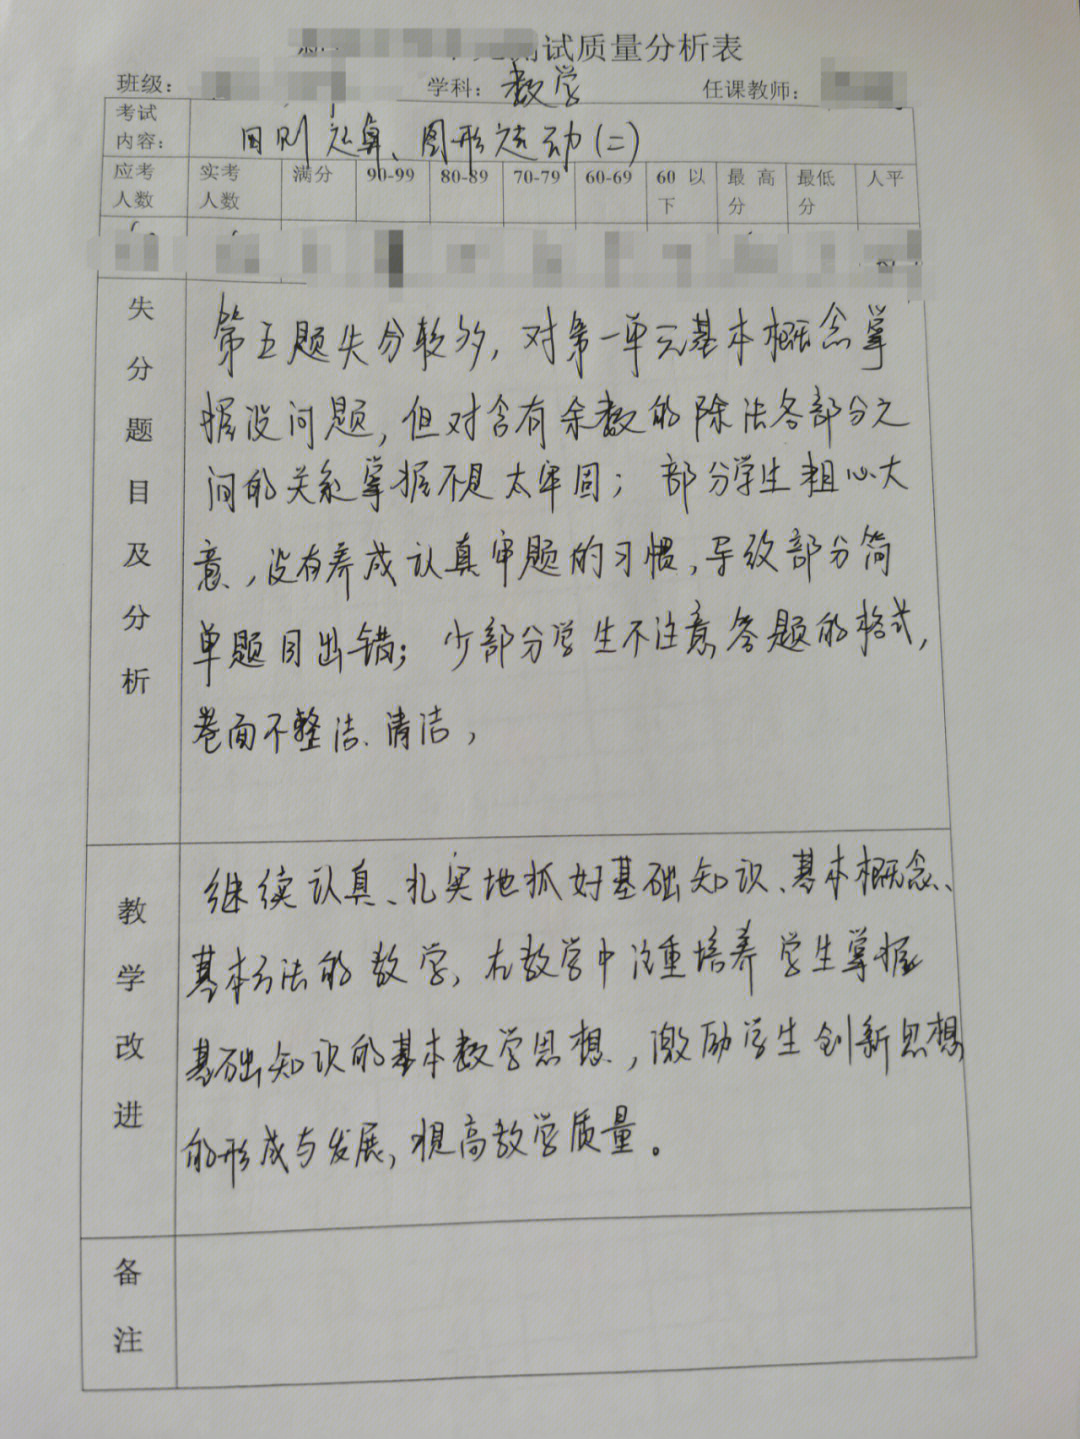 测试质量分析表
班级： 学科：数学 任课教师：
考试内容： 四则运算、图形运动(二)
应考人数 实考人数 满分 90-99 80-89 70-79 60-69 60以下 最高分 最低分 人平
失分题目及分析
第五题失分较多，对第一单元基本概念掌
握没问题，但对含有余数的除法各部分之
间的关系掌握不是太牢固；部分学生粗心大
意，没有养成认真审题的习惯，导致部分简
单题目出错；少部分学生不注意答题的格式，
卷面不整洁、清洁，
教学改进
继续认真、扎实地抓好基础知识、基本概念、
基本方法的教学，在教学中注重培养学生掌握
基础知识的基本数学思想，激励学生创新思想
的形成与发展，提高教学质量。
备注